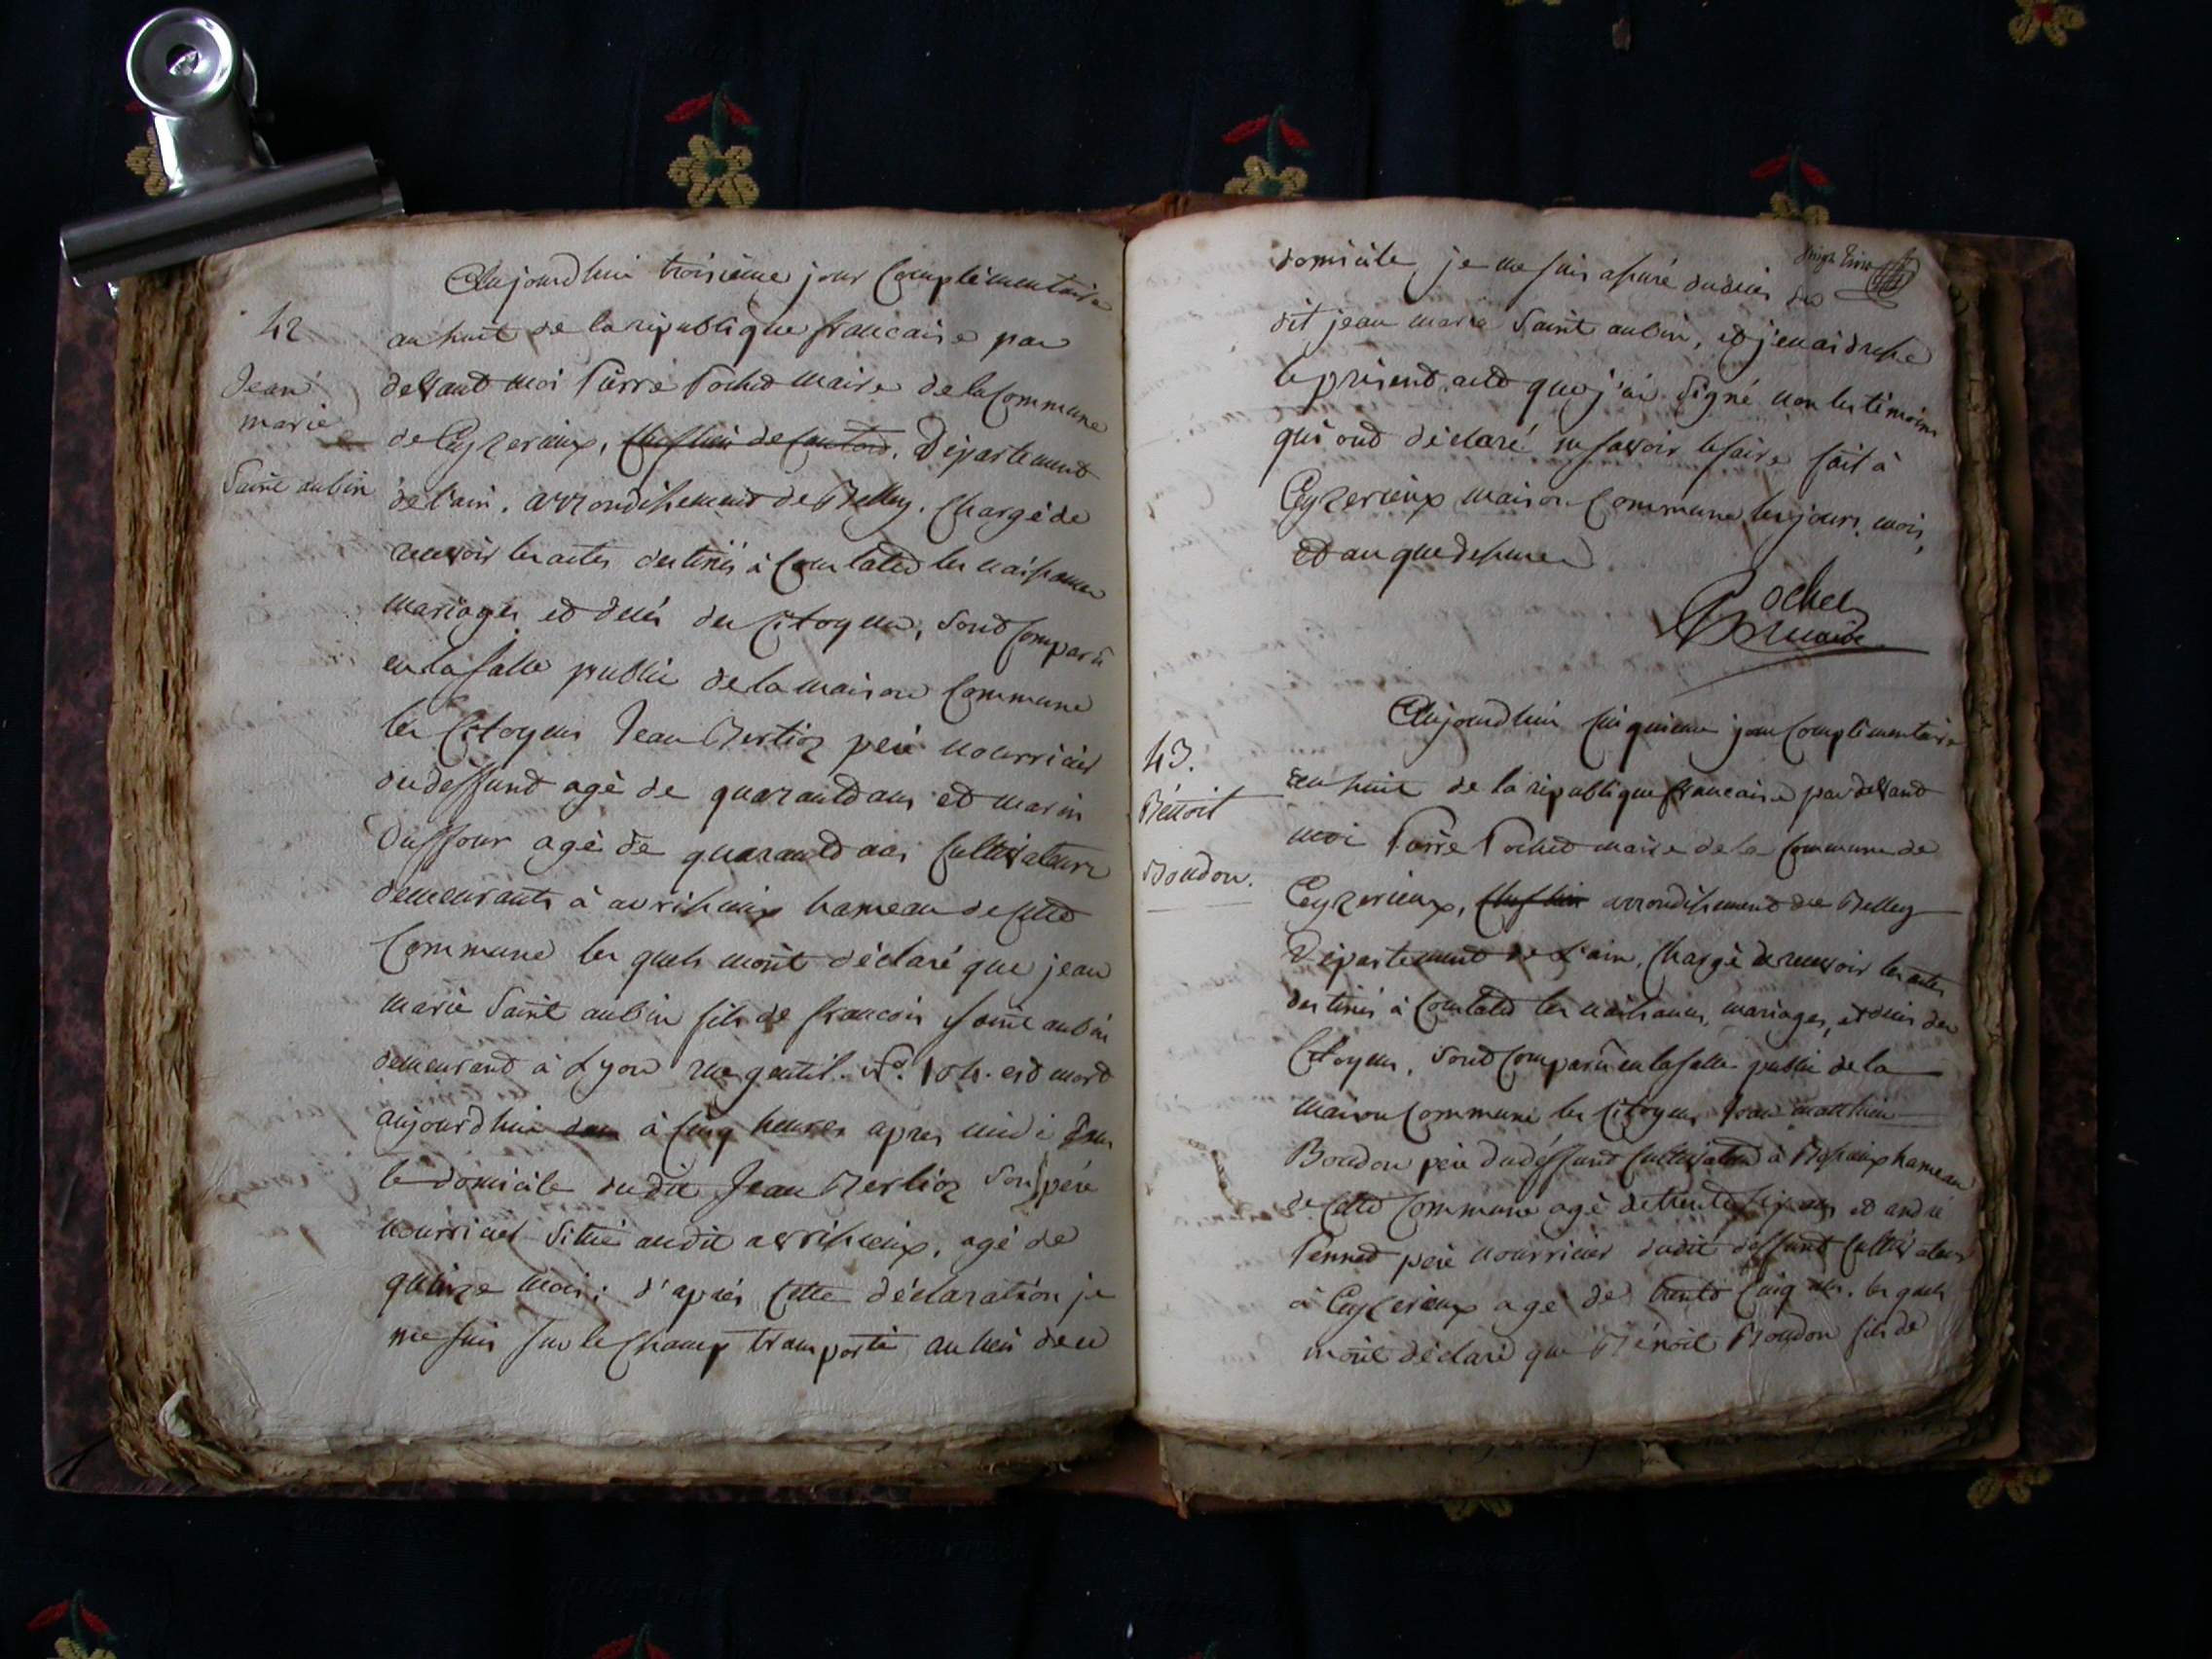 42
Jean
marie
Saint aubin
Aujourdhui troisieme jour Complementaire
an huit de la république francaise par
devant moi Pierre Pochet maire de la Commune
de Ceyzerieux, Cheflieu de Canton. Département
de l'ain. arrondissement de Belley. Chargé de
recevoir les actes destinés à Constater les naissances
mariages et decés des Citoyens, sont comparu
en la salle public de la maison Commune
les Citoyens Jean Bertioz pere nourricier
du deffunt agé de quarante ans et marin
Duffour agé de quarante ans Cultivateurs
demeurants à avrissieux hameau de cette
Commune les quels mont déclaré que jean
marie Saint aubin fils de francois Saint aubin
demeurant à Lyon rue gentil. N°. 104. est mort
aujourdhui à Cinq heures apres midi dans
le domicile du dit Jean Bertioz Son pere
nourricier Situé audit avrissieux, agé de
quinze mois; d'aprés Cette déclaration je
me suis sur le Champ transporté au lieu de ce
domicile, je me suis assuré du deces du
dit jean marie Saint aubin, et j'en ai dressé
le présent acte que j'ai Signé non les témoins
qui ont déclaré ne savoir le faire fait à
Ceyzerieux maison Commune les jours, mois,
et an que dessus
Pochet
maire
43.
Bénoit
Boudon.
Aujourdhui Cinquieme jour Complimentaire
an huit de la république francaise par devant
moi Pierre Pochet maire de la Commune de
Ceyzerieux, Cheflieu arrondissement de Belley
Département de L'ain, Chargé de recevoir les actes
destinés à Constater les naissances, mariages, et decés des
Citoyens, Sont comparu en la salle public de la
maison Commune les Citoyens Jean matthieu
Boudon pere du deffunt Cultivateur à hameau
de Cette Commune agé de trente ans et andré
Pennet pere nourricier dudit deffunt Cultivateur
à Ceyzerieux agé de trente Cinq ans. les quels
mont déclaré que Bénoit Boudon fils de